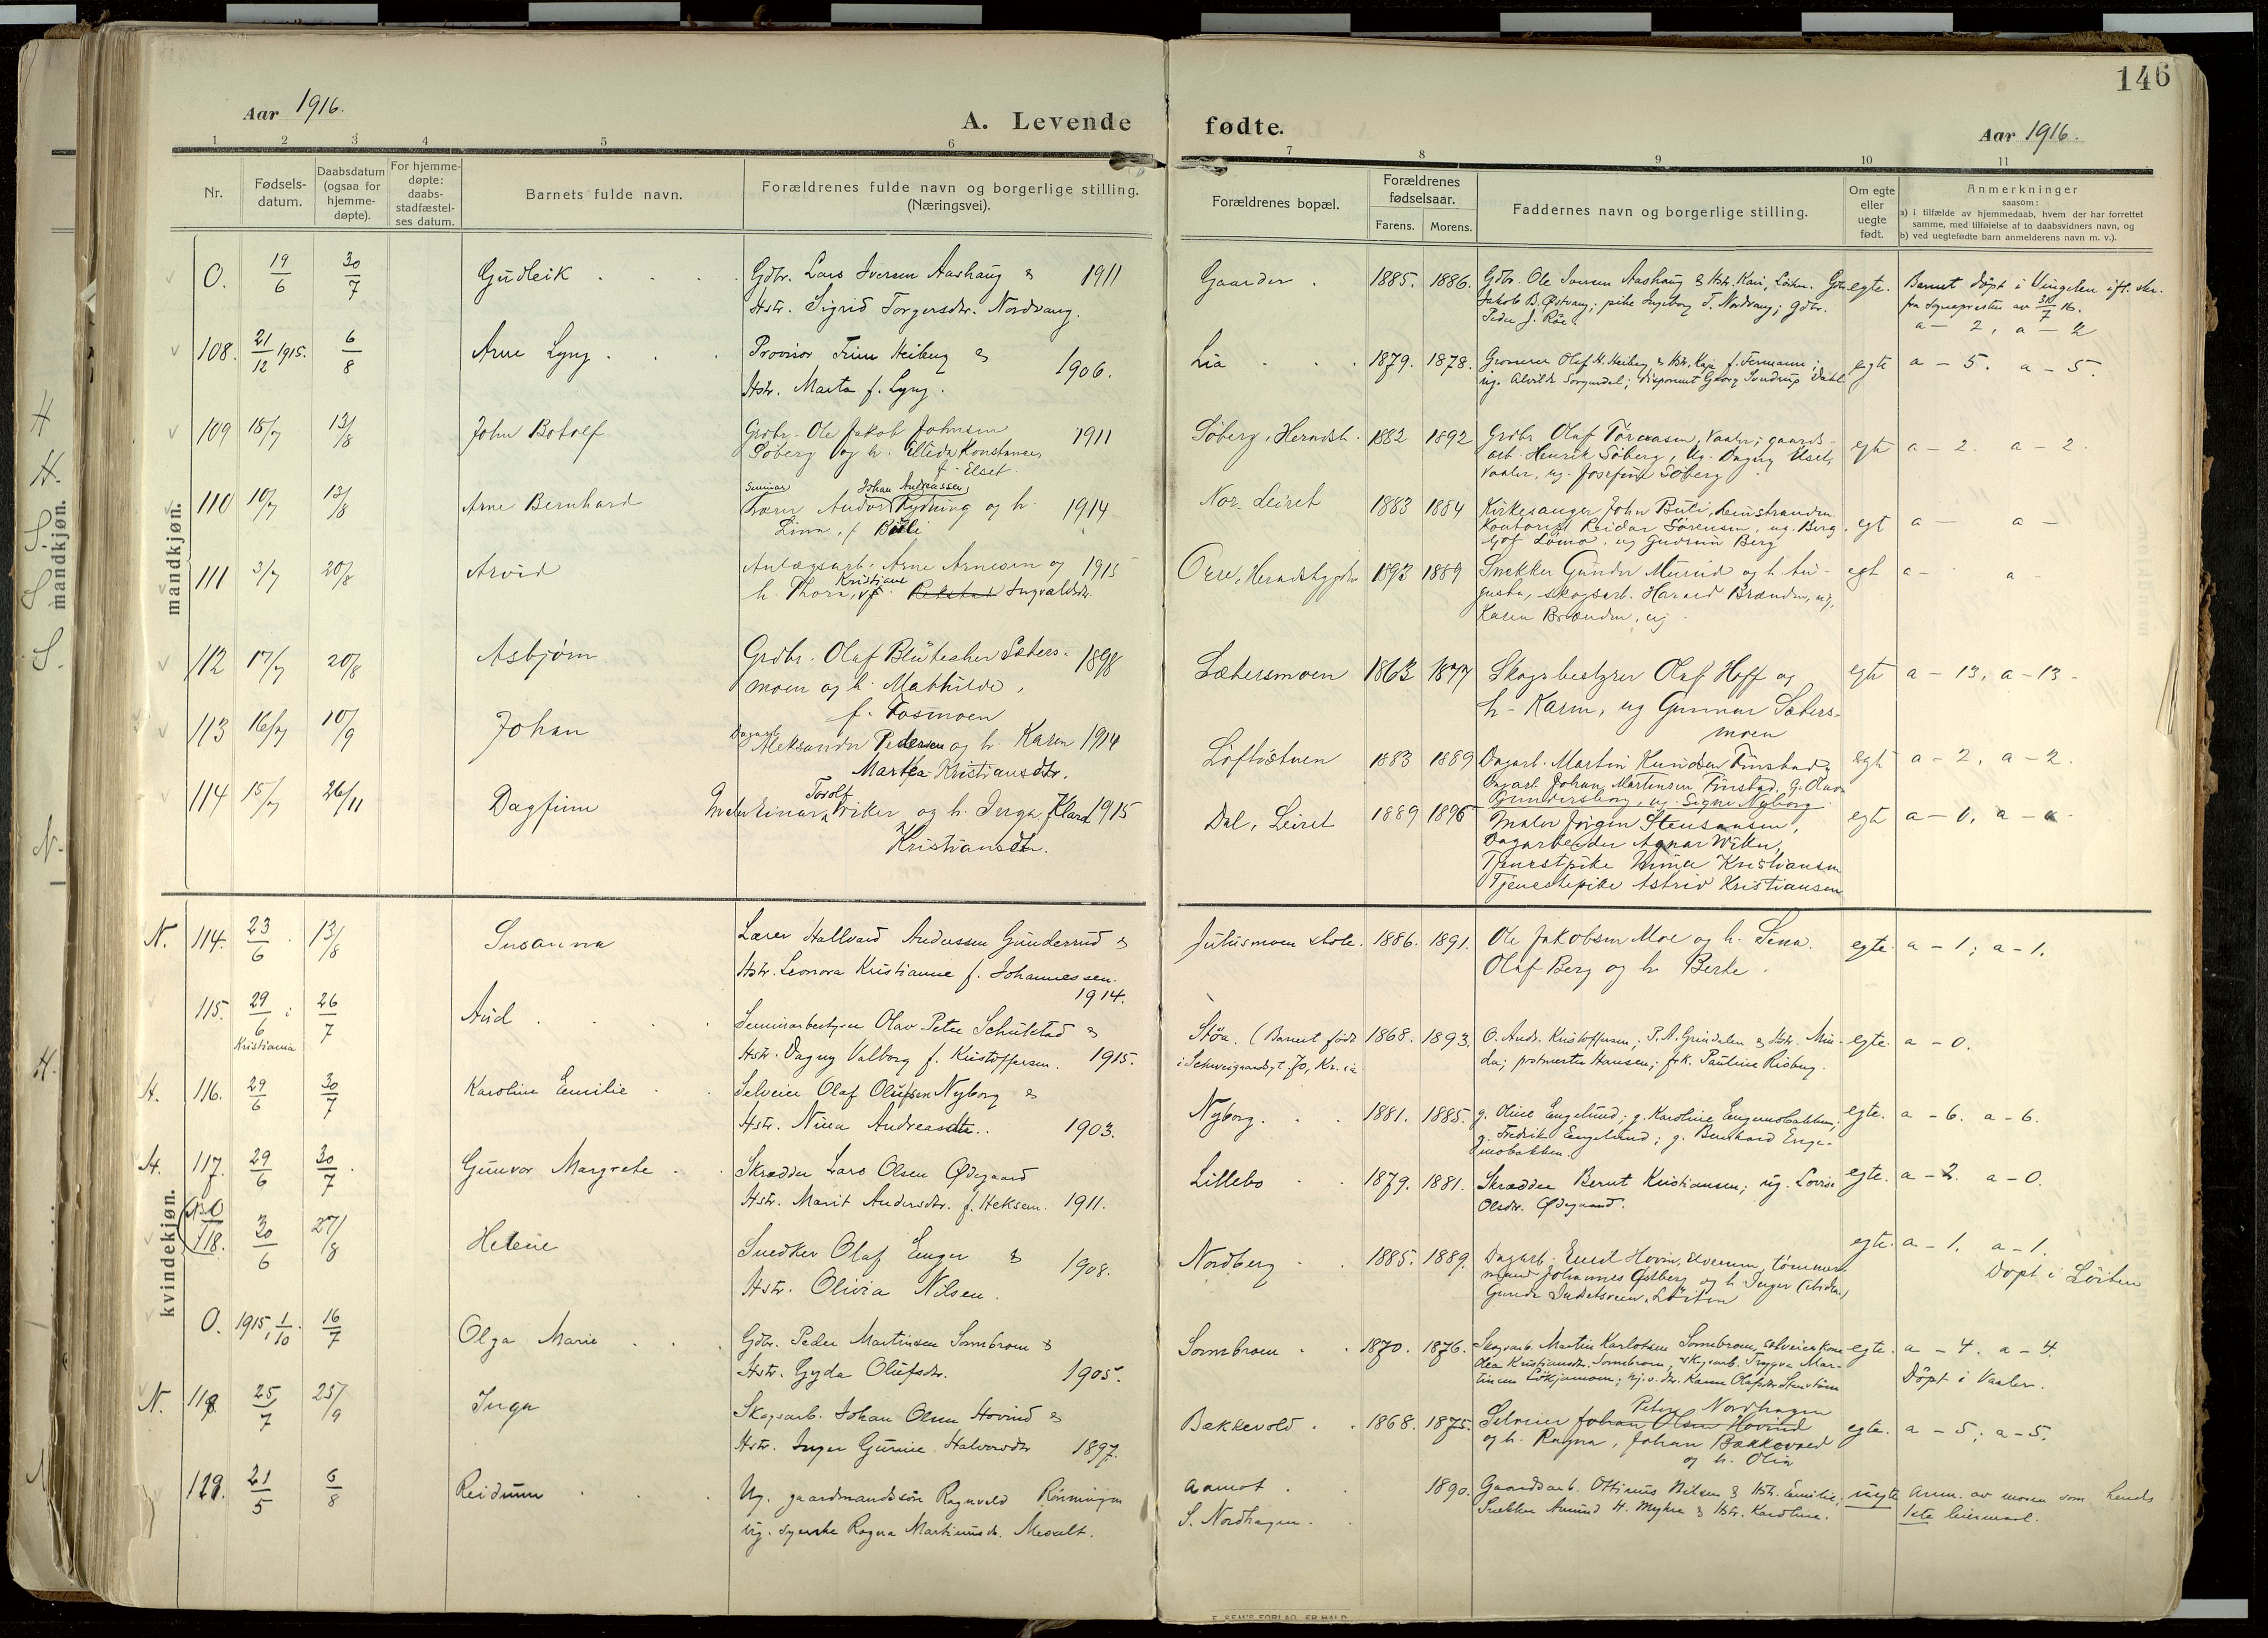 146
Aar 1916.
A. Levende fødte.
Aar 1916.
1 2 3 4 5 6 7 8 9 10 11
Nr.
Fødsels-
datum.
Daabsdatum
(ogsaa for
hjemme-
døpte).
For hjemme-
døpte:
daabs-
stadfæstel-
ses datum.
Barnets fulde navn.
Forældrenes fulde navn og borgerlige stilling.
(Næringsvei).
Forældrenes bopæl.
Forældrenes
fødselsaar.
Farens. Morens.
Faddernes navn og borgerlige stilling.
Om egte
eller
uegte
født.
Anmerkninger
saasom:
a) i tilfælde av hjemmedaab, hvem der har forrettet
samme, med tilføielse af to daabsvidners navn, og
b) ved uegtefødte barn anmelderens navn m. v.).
mandkjøn.
O. 19/6 30/7 Gudleik
Gdbr. Lars Iversen Aashaug & 1911
Hstr. Sigrid Torgersdtr. Nordvang.
Gaarder. 1885. 1886.
Gdbr. Ole Iversen Aashaug & Hstr. Kari, Löiten. Gdb.
Jakob B. Østvang; pike Ingeborg T. Nordvang; gdbr.
Peder J. Röe.
egte.
Barnet döpt i Vingelen ifl.
fra sognepresten av 31/7 16.
a – 2, a – 2
108. 21/12 1915. 6/8 Arne Lyng
Provisor Heiberg & 1906.
Hstr. Marta f. Lyng.
Lia 1879. 1878.
Olaf H. Heiberg & Hstr. Kaja f. Fermann;
ug. Alvilde Sorgendal; disponent Georg Sverdrup Dahl
egte a – 5. a – 5.
109 18/7 13/8 John Botolf
Grdbr. Ole Jakob Johnsen 1911
Søberg og h. Elida Konstanse,
f. Elset.
Søberg, Herndsb. 1882 1892
Grdbr Olaf Toreasen, Vaaler; gaards-
arb. Henrik Søberg, ug. Dagny Elset,
Vaaler, ug. Josefine Søberg
egte a – 2. a – 2.
110 10/7 13/8 Arne Bernhard
Seminar Johan Andreassen
lærer Andor Rydning og h. 1914
Linn, f Buli
Nor. Leiret 1883 1884
Kirkesanger John Buli, Leinstranden
Kontorist Reidar Sørensen, ug. Borg-
hof Lømo, ug Gudrun Berg
egt a – a –
111 3/7 20/8 Arvid
Anlægsarb. Arne Arnesen og 1915
Kristiane
h. Thora, f. Ingvaldsdr.
1893 1889
Snekker Gunder Murud og h. Au-
gusta, skogsarb. Harald Brænden, ug,
Karen Brænden, ug
egt a – a –
112 17/7 20/8 Asbjørn
Grdbr. Olaf Blütecher Sæters- 1898
moen og h. Mathilde,
f. Tosmoen
Sætersmoen 1863 1877
Skogsbestyrer Olaf Hoff og
h. Karen, ug Gunnar Sæters-
moen
egte a – 13, a – 13.
113 16/7 10/9 Johan
Dagarb.
Aleksander Pedersen og h. Karen 1914
Martea Kristiansdtr.
Løftistuen 1883 1889
Dagarb. Martin Knudsen Finstad,
Dagarb. Johan Martensen Finstad, G. Olava
Gundersborg, ug. Signe Nyborg
egte a – 2, a – 2.
114 15/7 26/11 Dagfinn
Torolf
Maler Einar Wiker og h. Inga Klara 1915
Kristiansdtr.
Dal, Leiret 1889 1896
Maler Jørgen Stensaasen,
Dagarbeider Agnar Wiker,
Tjenestpike Kristiansen
Tjenestepike Astrid Kristiansen
egte a – 0, a –
kvindekjøn.
N. 114. 23/6 13/8 Susanna
Lærer Hallvard Anderssen Gunderud &
Hstr. Leonora Kristianne f. Johannessen.
1914.
Juliusmoen skole. 1886. 1891.
Ole Jakobsen Moe og h. Lena.
Olaf Berg og h. Berte.
egte. a – 1; a – 1.
115. 29/6 i Kristiania 26/7 Aud
Seminarbestyrer Olav Peter Schulstad &
Hstr. Dagny Valborg f. Kristoffersen. 1915.
Støa. (Barnet født
i Schweigaardsgt 70, Kr.ia
1868. 1893.
O. Andr. Kristoffersen; P. A. Grindalen & Hstr. Min-
da; postmester Hansen; frk. Pauline Risberg.
egte. a – 0.
H. 116. 29/6 30/7 Karoline Emilie
Selveier Olaf Olufsen Nyborg &
Hstr. Nina Andreasdtr. 1903.
Nyborg. 1881. 1885.
g. Oline Engelund; g. Karoline Engemobakken,
g. Fredrik Engelund; g. Bernhard Enge-
mobakken.
egte. a – 6. a – 6.
H. 117. 29/6 30/7 Gunvor Margrete
Skrædder Lars Olsen Ødegaard
Hstr. Marit Andersdtr. f. Heksem. 1911.
Lillebo 1879. 1881.
Skrædder Bernt Kristiansen; ug. Lovise
Olsdtr. Ødegaard.
egte. a – 2. a – 0.
118. 30/6 27/8 Helene
Snedker Olaf Enger & 1908.
Hstr. Olivia Nilsen.
Nordberg 1885. 1889.
Dagarb. Emil Hovin, Elverum, tømmer-
mand Johannes Østberg og h. Inger
Löiten
egte. a – 1. a – 1.
Döpt i Löiten
O. 1915, 1/10. 16/7 Olga Marie
Gdbr. Peder Martinsen Sormbroen &
Hstr. Gyda Olufsdtr. 1905.
Sormbroen 1870. 1876.
Skogsarb. Martin Karlotsen Sormbroen, selveierkone
Kristiansdtr. Sormbroen, skogsarb. Trygve Mar-
tinsen
egte. a – 4. a – 4.
Döpt i Vaaler.
N. 119. 25/7 25/9 Inga
Skogsarb. Johan Olsen Hovind &
Hstr. Inger Gurine Halvorsdtr 1897.
Bækkevold 1868. 1875.
Peter Nordhagen
Selveier Johan Olsen Hovind
og h. Ragna, Johan Bækkevold
og h. Olia
egte. a – 5; a – 5.
21/5 6/8 Reidunn
Ug. gaardmandssön Ragnvald Rönningen
ug. syerske Ragna Martinusdtr. Messelt.
Aamot
S. Nordhagen.
1890.
Gaardsarb. Ottinus Nilsen & Hstr. Emilie;
Snekker Amund H. Myhre & Hstr. Karoline.
uegte Anm. av moren som hendes
1ste leiermaal.
E. SEM'S FORLAG, FR.HALD